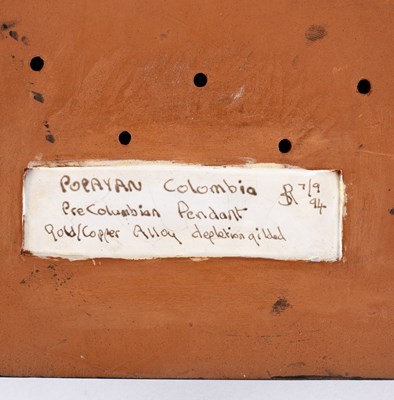 POPAYAN Colombia 7/9
PreColumbian Pendant 94
Gold/Copper Alloy depletion gilded